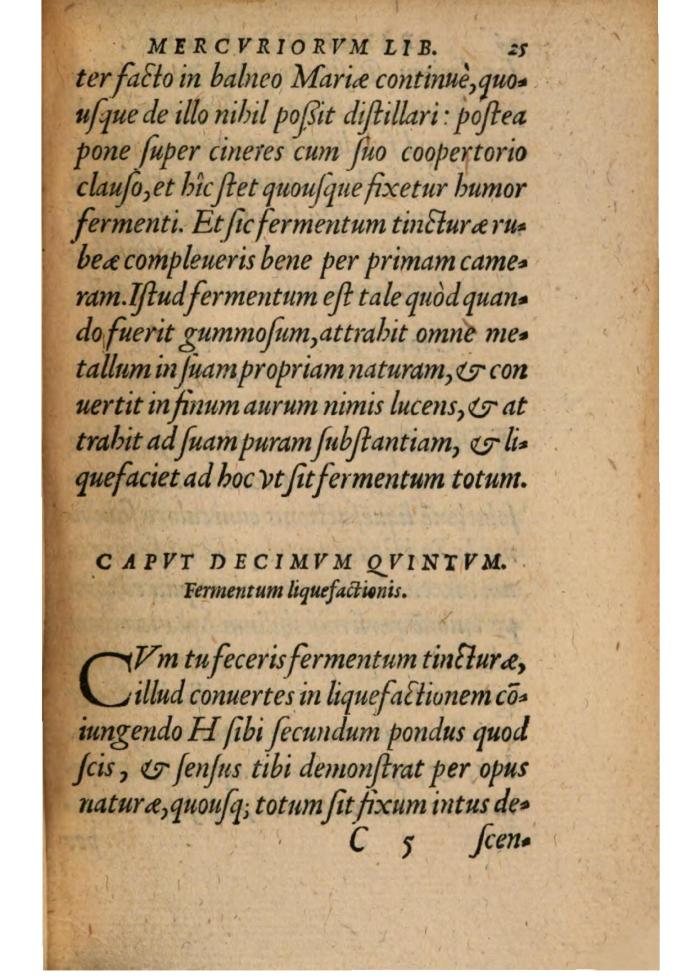 MERCVRIORVM LIB. 25
ter facto in balneo Mariæ continuè, quo-
uſque de illo nihil poſsit diſtillari: poſtea
pone ſuper cineres cum ſuo coopertorio
clauſo, et hîc ſtet quouſque fixetur humor
fermenti. Et ſic fermentum tincturæ ru-
beæ compleueris bene per primam came-
ram. Iſtud fermentum eſt tale quòd quan-
do fuerit gummoſum, attrahit omne me-
tallum in ſuam propriam naturam, & con
uertit in finum aurum nimis lucens, & at
trahit ad ſuam puram ſubſtantiam, & li-
quefaciet ad hoc vt ſit fermentum totum.
CAPVT DECIMVM QVINTVM.
Fermentum liquefactionis.
CVm tu feceris fermentum tincturæ,
illud conuertes in liquefactionem cō-
iungendo H ſibi ſecundum pondus quod
ſcis, & ſenſus tibi demonſtrat per opus
naturæ, quouſq; totum ſit fixum intus de-
C 5 ſcen-